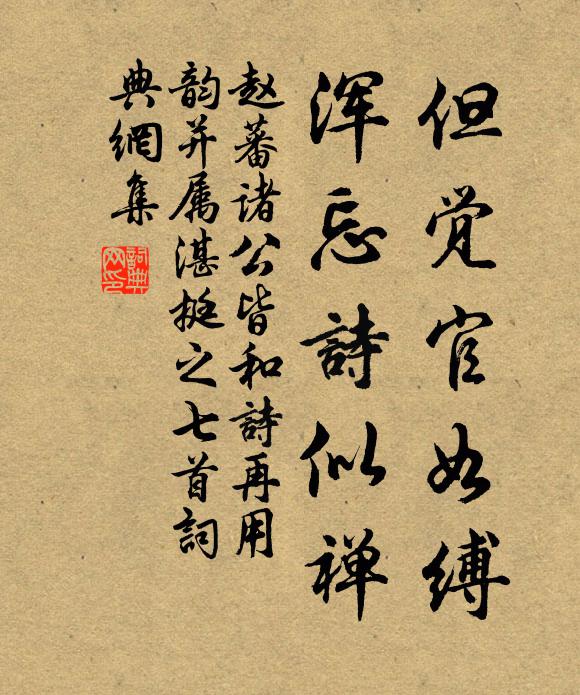 但觉官如缚
浑忘詩似禅
赵蕃诸公皆和詩再用
韵并属湛挺之七首詞
典網集
詞典
网印